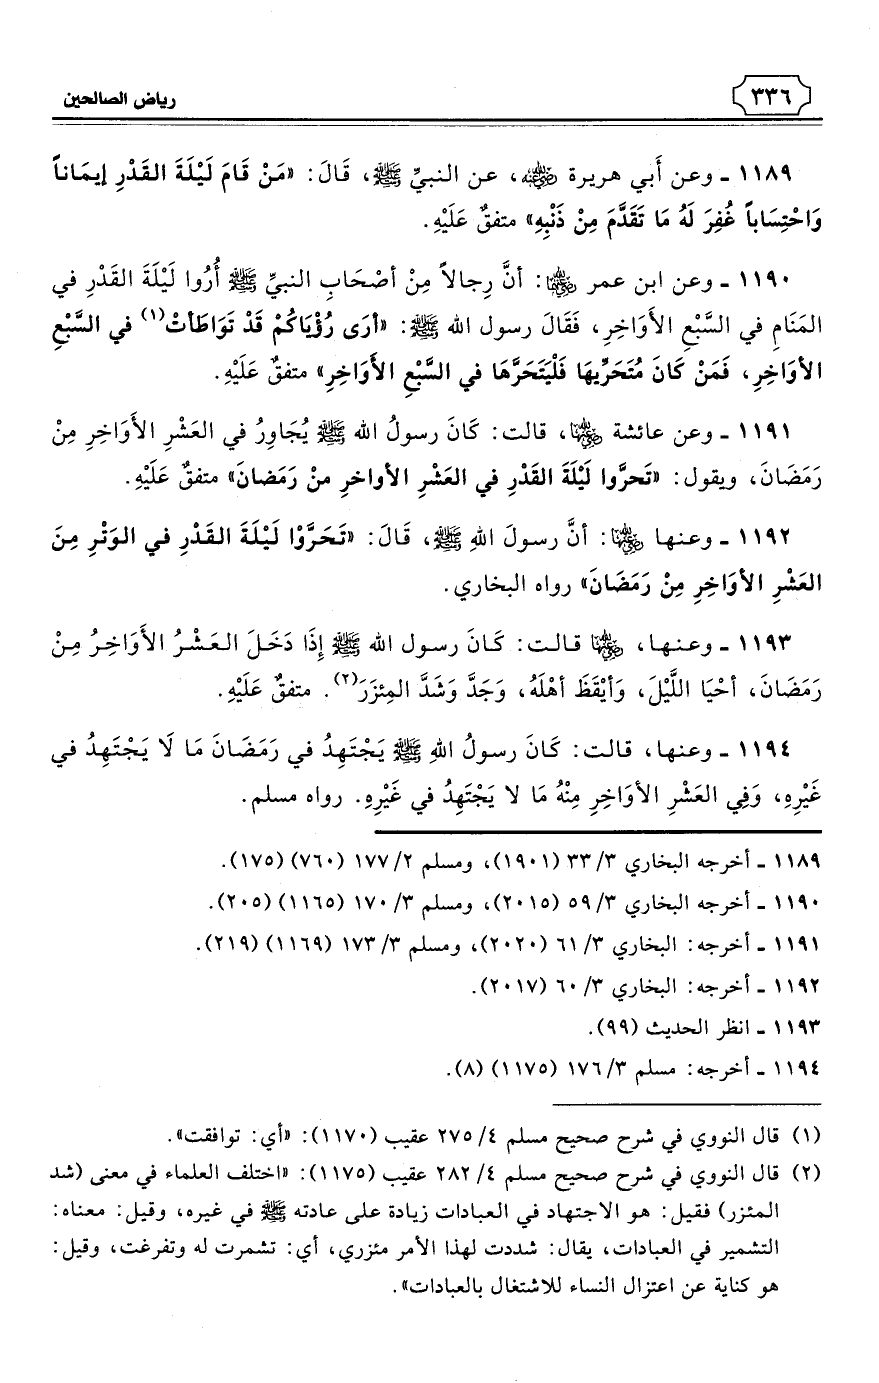 ٣٣٦ رياض الصالحين
١١٨٩ ـ وعن أَبي هريرة ﵁، عن النبيِّ ﷺ، قَالَ: «مَنْ قَامَ لَيْلَةَ القَدْرِ إيمَاناً
وَاحْتِسَاباً غُفِرَ لَهُ مَا تَقَدَّمَ مِنْ ذَنْبِهِ» متفقٌ عَلَيْهِ.
١١٩٠ ـ وعن ابن عمر ﵄: أنَّ رِجالاً مِنْ أصْحَابِ النبيِّ ﷺ أُرُوا لَيْلَةَ القَدْرِ في
المَنَامِ في السَّبْعِ الأَوَاخِرِ، فَقَالَ رسول الله ﷺ: «أرَى رُؤْيَاكُمْ قَدْ تَوَاطَأتْ(١) في السَّبْعِ
الأوَاخِرِ، فَمَنْ كَانَ مُتَحَرِّيهَا فَلْيَتَحَرَّهَا في السَّبْعِ الأَوَاخِرِ» متفقٌ عَلَيْهِ.
١١٩١ ـ وعن عائشة ﵂، قالت: كَانَ رسولُ الله ﷺ يُجَاوِرُ في العَشْرِ الأَوَاخِرِ مِنْ
رَمَضَانَ، ويقول: «تَحرَّوا لَيْلَةَ القَدْرِ في العَشْرِ الأواخرِ منْ رَمَضانَ» متفقٌ عَلَيْهِ.
١١٩٢ ـ وعنها ﵂: أنَّ رسولَ اللهِ ﷺ، قَالَ: «تَحَرَّوْا لَيْلَةَ القَدْرِ في الوَتْرِ مِنَ
العَشْرِ الأوَاخِرِ مِنْ رَمَضَانَ» رواه البخاري.
١١٩٣ ـ وعنها، ﵂ قالت: كَانَ رسول الله ﷺ إِذَا دَخَلَ العَشْرُ الأَوَاخِرُ مِنْ
رَمَضَانَ، أحْيَا اللَّيْلَ، وَأيْقَظَ أهْلَهُ، وَجَدَّ وَشَدَّ المِئزَرَ(٢). متفقٌ عَلَيْهِ.
١١٩٤ ـ وعنها، قالت: كَانَ رسولُ اللهِ ﷺ يَجْتَهِدُ في رَمَضَانَ مَا لَا يَجْتَهِدُ في
غَيْرِهِ، وَفِي العَشْرِ الأوَاخِرِ مِنْهُ مَا لا يَجْتَهِدُ في غَيْرِهِ. رواه مسلم.
١١٨٩ ـ أخرجه البخاري ٣/ ٣٣ (١٩٠١)، ومسلم ٢/ ١٧٧ (٧٦٠) (١٧٥).
١١٩٠ ـ أخرجه البخاري ٣/ ٥٩ (٢٠١٥)، ومسلم ٣/ ١٧٠ (١١٦٥) (٢٠٥).
١١٩١ ـ أخرجه: البخاري ٣/ ٦١ (٢٠٢٠)، ومسلم ٣/ ١٧٣ (١١٦٩) (٢١٩).
١١٩٢ ـ أخرجه: البخاري ٣/ ٦٠ (٢٠١٧).
١١٩٣ ـ انظر الحديث (٩٩).
١١٩٤ ـ أخرجه: مسلم ٣/ ١٧٦ (١١٧٥) (٨).
(١) قال النووي في شرح صحيح مسلم ٤/ ٢٧٥ عقيب (١١٧٠): «أي: توافقت».
(٢) قال النووي في شرح صحيح مسلم ٤/ ٢٨٢ عقيب (١١٧٥): «اختلف العلماء في معنى (شد
المئزر) فقيل: هو الاجتهاد في العبادات زيادة على عادته ﷺ في غيره، وقيل: معناه:
التشمير في العبادات، يقال: شددت لهذا الأمر مئزري، أي: تشمرت له وتفرغت، وقيل:
هو كناية عن اعتزال النساء للاشتغال بالعبادات».